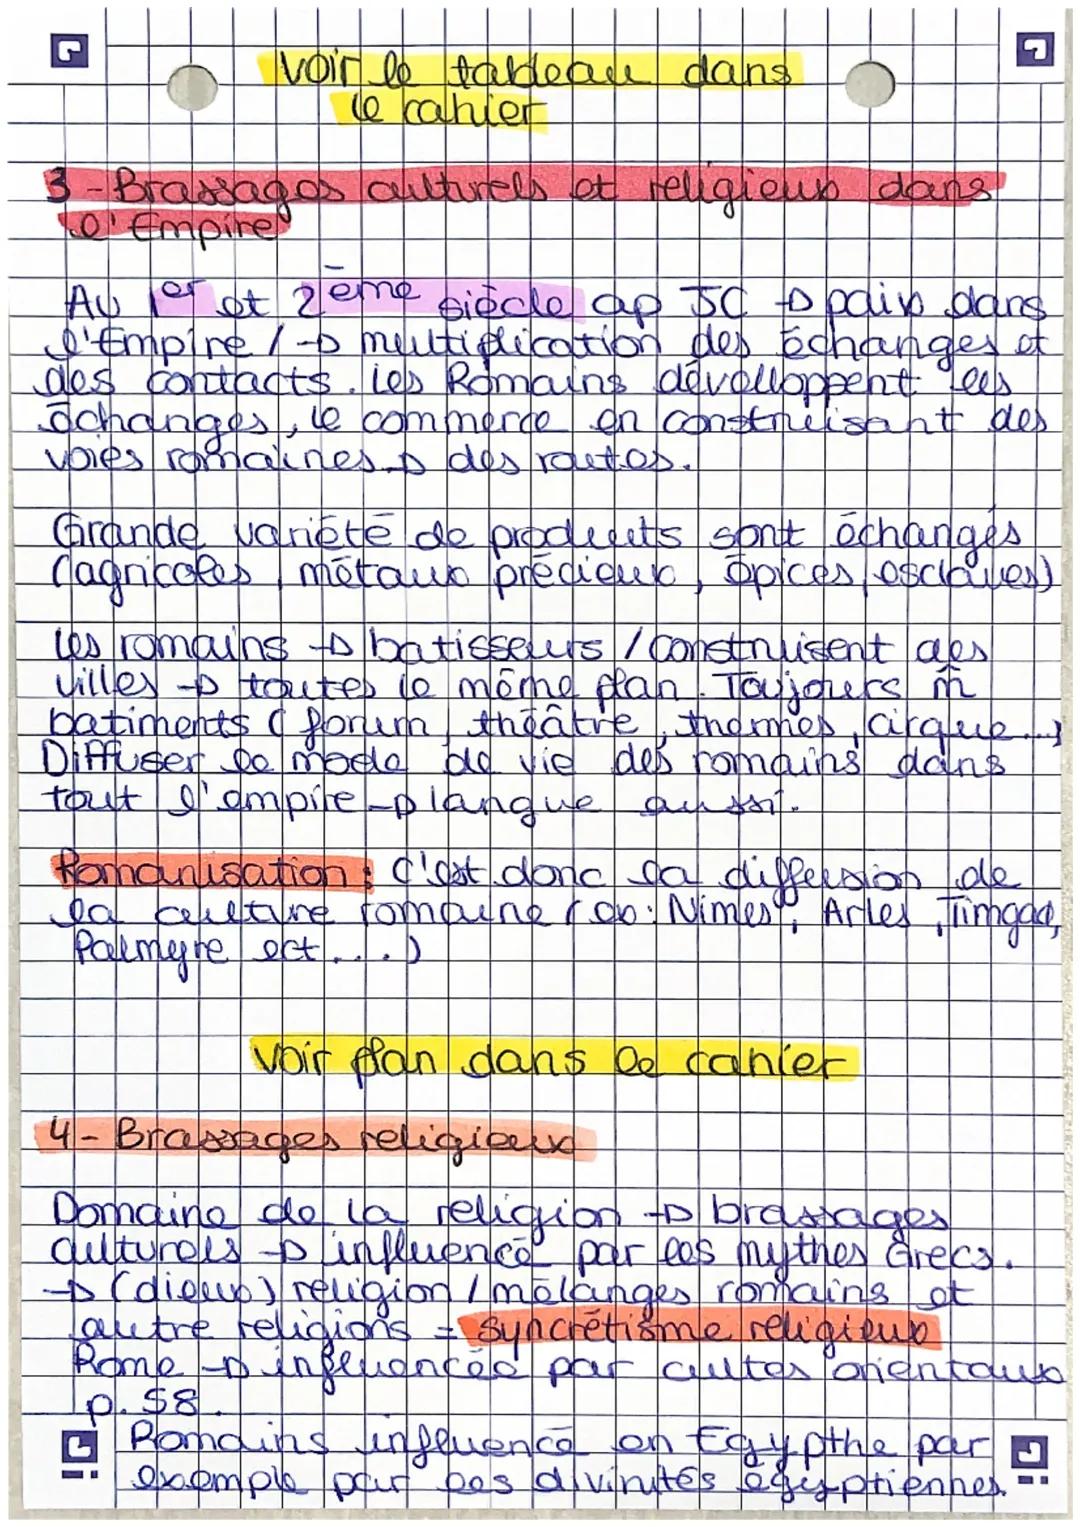 voir le tableau dans
le cahier
3 - Brassages culturels et religieux dans
l'Empire
Au 1er et 2ème siècle ap JC → paix dans
l'Empire / → multiplication des échanges et
des contacts. Les Romains dévelloppent les
échanges, le commerce en construisant des
voies romaines → des routes.
Grande variété de produits sont échangés
(agricoles, métaux précieux, épices, esclaves)
Les romains → batisseurs / construisent des
villes → toutes le même plan. Toujours m̂
batiments (forum, théâtre, thermes, cirque...)
Diffuser le mode de vie des romains dans
tout l'empire → langue aussi.
Romanisation : C'est donc la diffusion de
la culture romaine (ex: Nimes, Arles, Timgad,
Palmyre ect....)
voir plan dans le cahier
4 - Brassages religieux
Domaine de la religion → brassages
culturels → influencé par les mythes Grecs.
→ (dieux) religion / mélanges romains et
autre religions = syncrétisme religieux
Rome → influencée par cultes orientaux
p. 58.
Romains influencé en Egypthe par
exemple par les divinités égyptiennes.